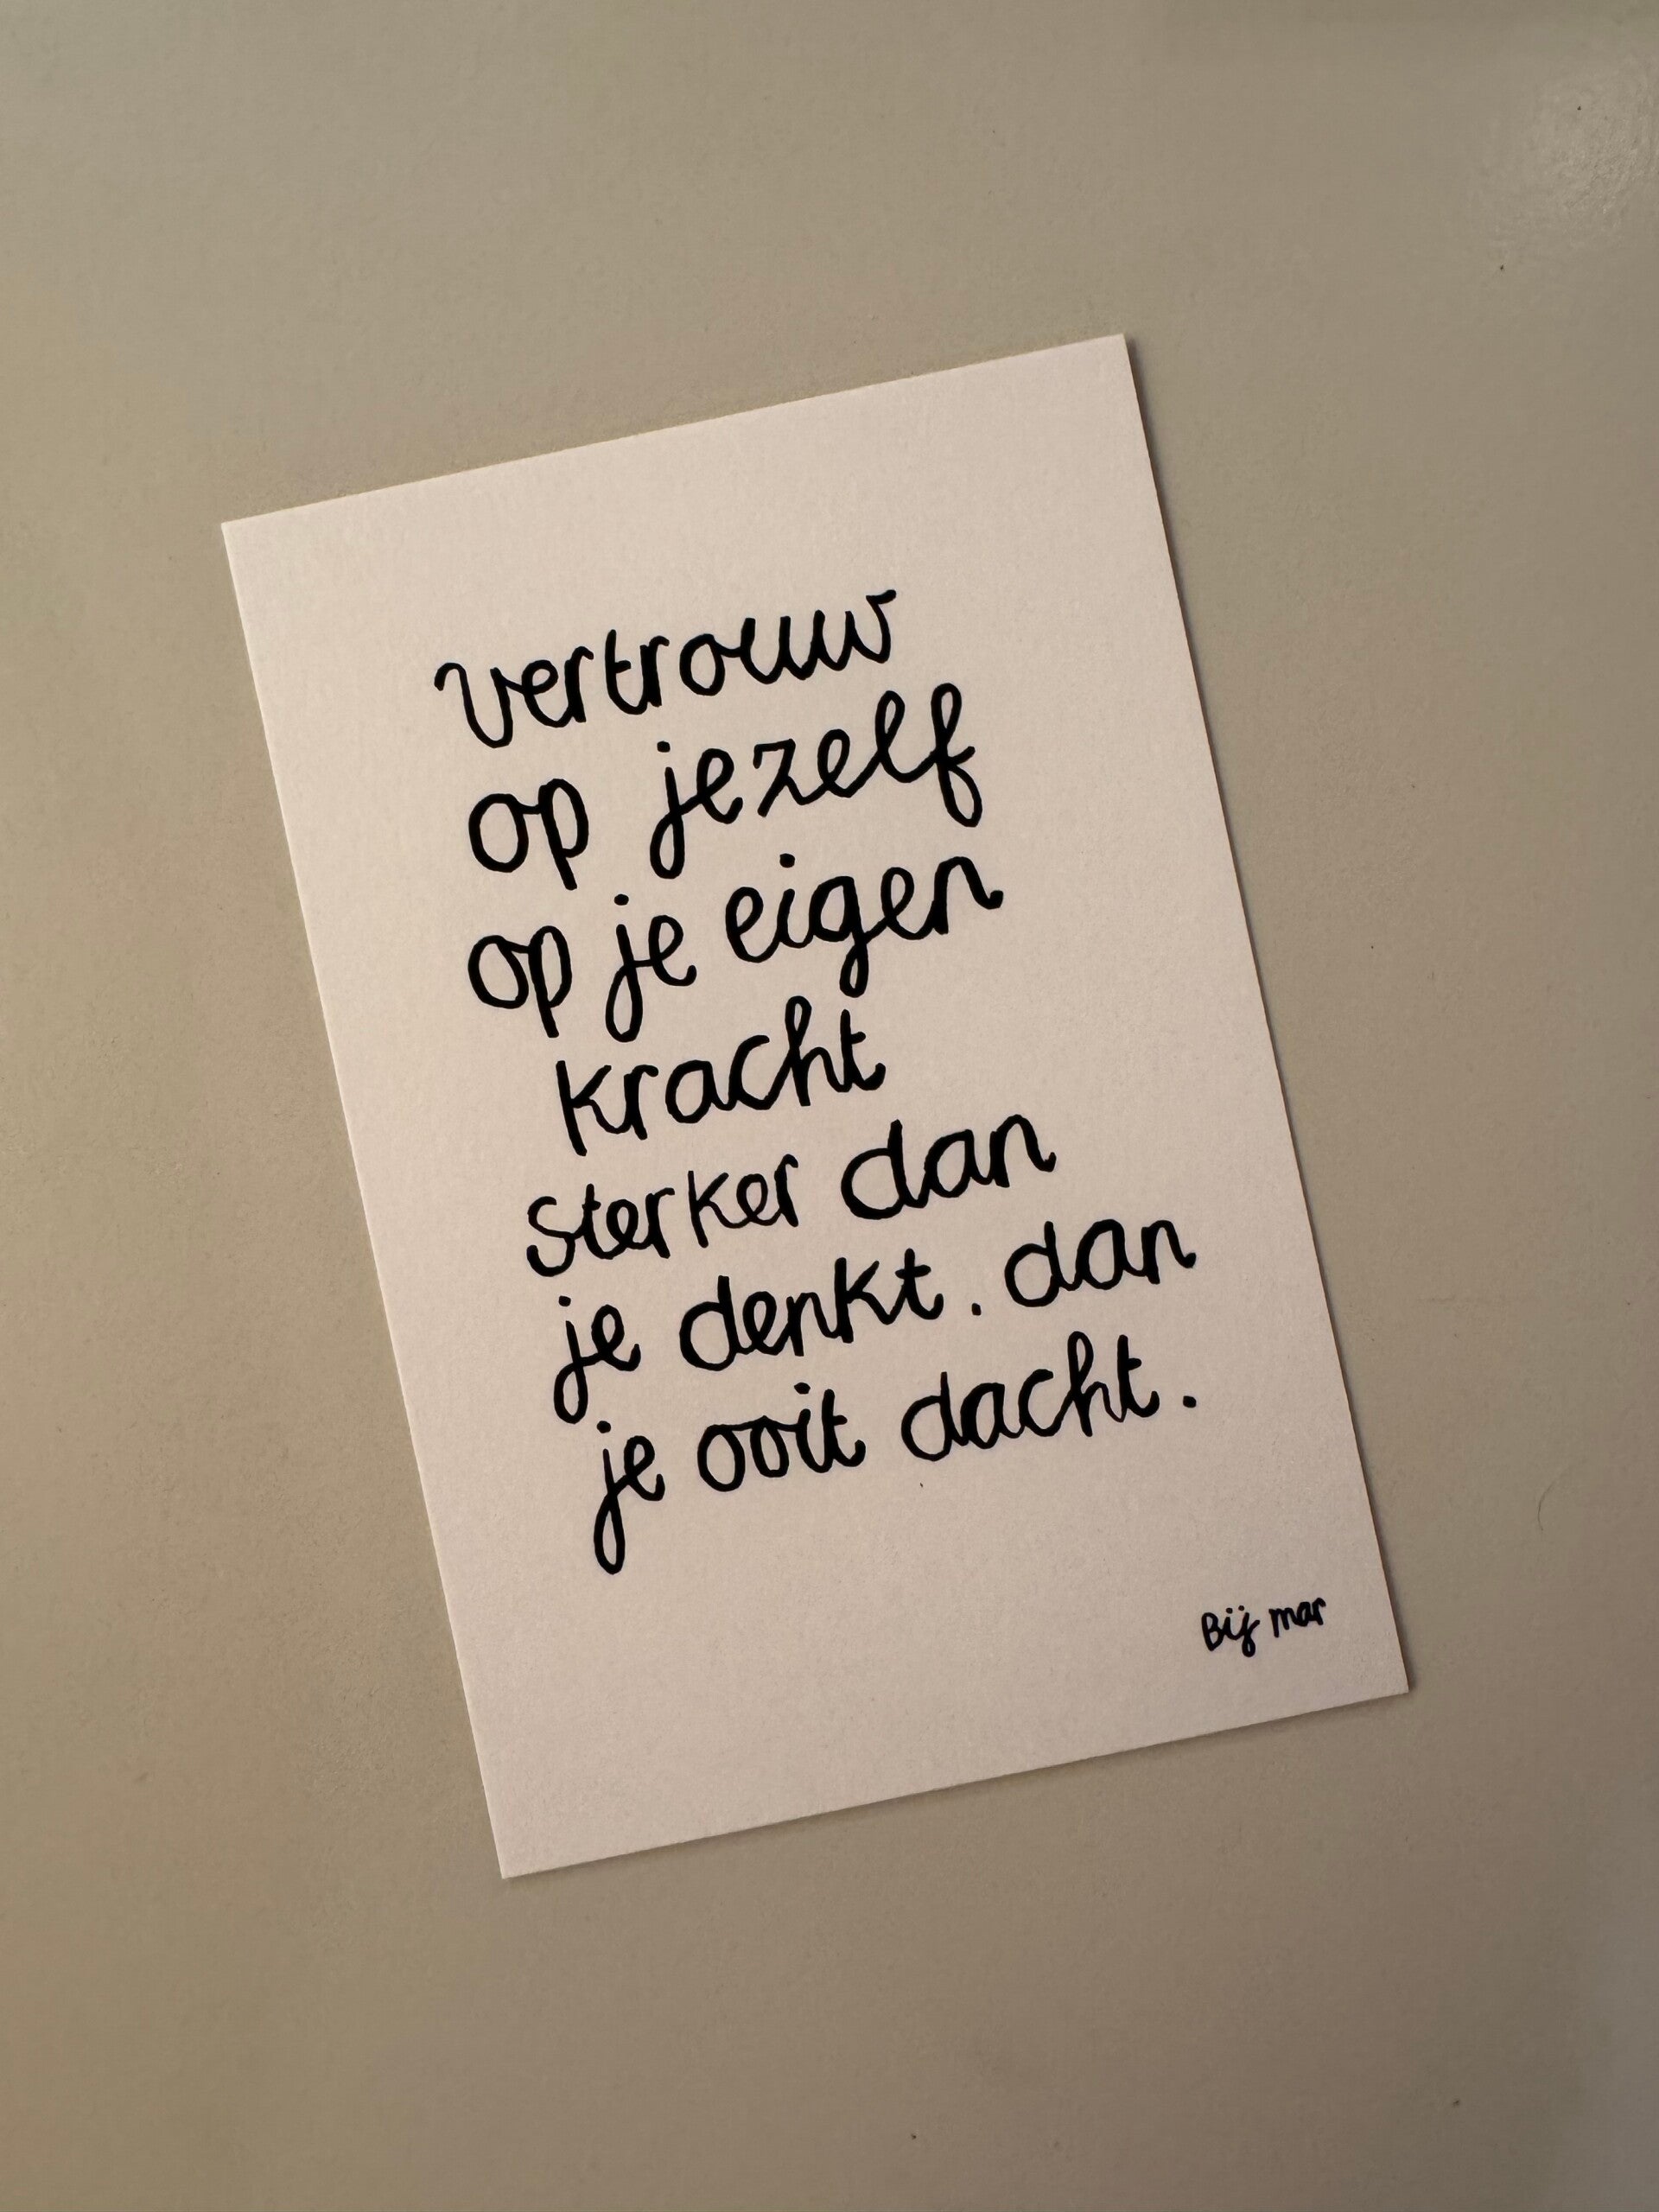 vertrouw
op jezelf
op je eigen
kracht
sterker dan
je denkt. dan
je ooit dacht.
Bij mar